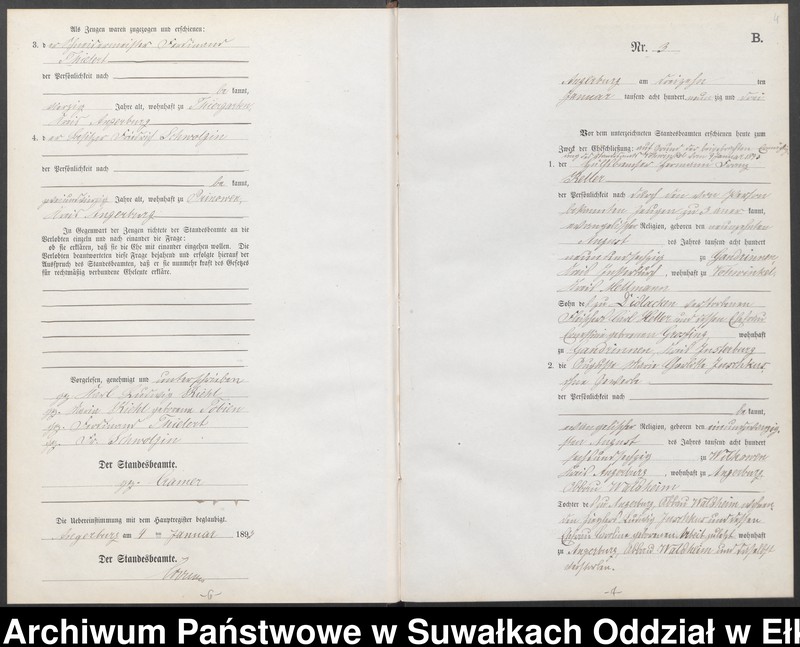 Als Zeugen waren zugezogen und erschienen:
3. der Schneidermeister Ferdinand
Thielert
der Persönlichkeit nach
be kannt,
vierzig Jahre alt, wohnhaft zu Thiergarten
Kreis Angerburg
4. der Besitzer Friedrich Schwolgin
der Persönlichkeit nach
be kannt,
Jahre alt, wohnhaft zu Prinowen,
Kreis Angerburg
In Gegenwart der Zeugen richtete der Standesbeamte an die
Verlobten einzeln und nach einander die Frage:
ob sie erklären, daß sie die Ehe mit einander eingehen wollen. Die
Verlobten beantworteten diese Frage bejahend und erfolgte hierauf der
Ausspruch des Standesbeamten, daß er sie nunmehr kraft des Gesetzes
für rechtmäßig verbundene Eheleute erkläre.
Vorgelesen, genehmigt und unterschrieben
gez. Karl Ludwig Kühl
gez. Maria Kühl geborene Tobien
gez. Ferdinand Thielert
gez. Fr. Schwolgin
Der Standesbeamte.
gez. Cramer
Die Uebereinstimmung mit dem Hauptregister beglaubigt.
Angerburg am 9 ten Januar 1893
Der Standesbeamte.
-6-
4
B.
Nr. 3
Angerburg am dreizehn ten
Januar tausend acht hundert neun zig und drei
Vor dem unterzeichneten Standesbeamten erschienen heute zum
Zweck der Eheschließung: auf Grund der
1. der Hermann Franz
Keller
der Persönlichkeit nach durch den von Person
bekannten Zeugen zu 3 aner kannt,
evangelischer Religion, geboren den neunzehnten
August des Jahres tausend acht hundert
neunundsechszig zu Gandrinnen
Kreis Insterburg, wohnhaft zu Vohwinkel
Kreis Mettmann
Sohn des zu Didlacken verstorbenen
Karl Keller und dessen Ehefrau
geborenen wohnhaft
zu Gandrinnen, Kreis Insterburg
2. die Auguste Maria Charlotte Juschkus
ohne Gewerbe
der Persönlichkeit nach
be kannt,
evangelischer Religion, geboren den einundzwanzig-
sten August des Jahres tausend acht hundert
sechsundsechszig zu
Kreis Angerburg, wohnhaft zu Angerburg,
Abbau Waldheim
Tochter des zu Angerburg Abbau Waldheim
Ludwig Juschkus und dessen
Ehefrau Caroline geborenen wohnhaft
zu Angerburg Abbau Waldheim und daselbst
verstorben.
-4-
Archiwum Państwowe w Suwałkach Oddział w Eł